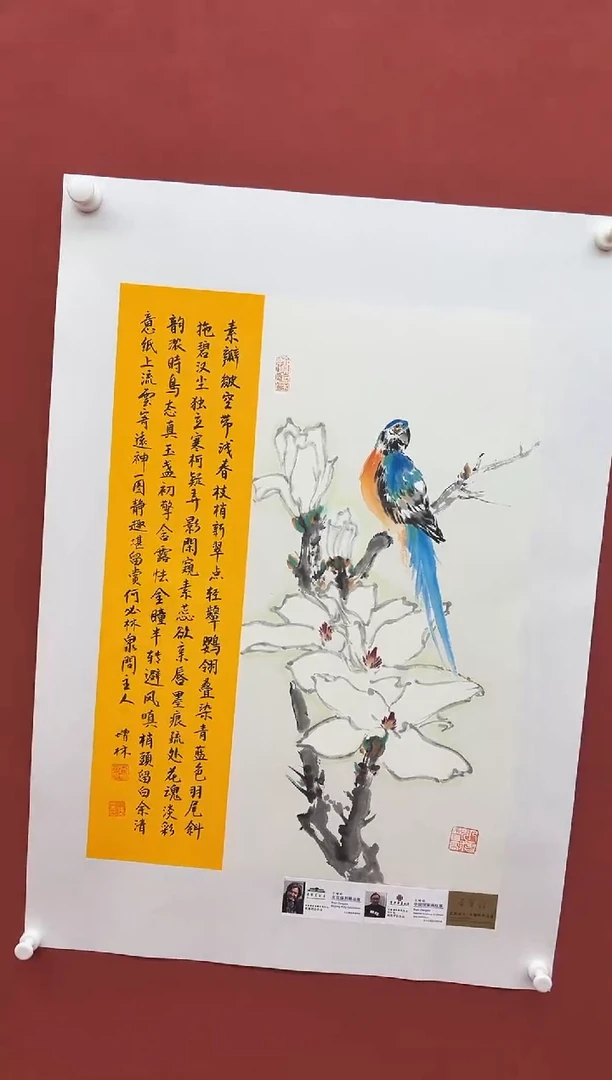 素瓣皴空带浅春枝梢新翠点轻颦鹦翎叠染青蓝色羽尾斜
拖碧汉尘独立寒柯疑弄影閑窥素蕊欲亲唇墨痕疏处花魂淡彩
韵浓時鸟态真玉盏初擎含露怯金瞳半转避风嗔梢頭留白余清
意纸上流雲寄遠神一图静趣堪留赏何必林泉問主人